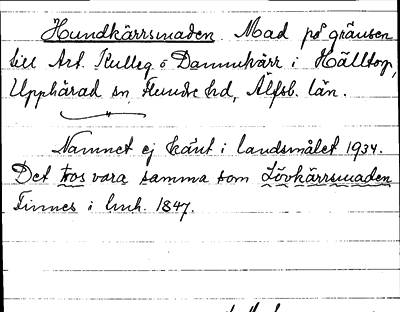 Hundkärrsmaden Mad på gränsen
till Art. Kulleg o Dammkärr i Hälltorp,
Upphärad sn, Flundre hd, Älfsb. län.
Namnet ej känt i landsmålet 1934.
Det tros vara samma som Lövkärrsmaden
Finnes i lmh. 1847.